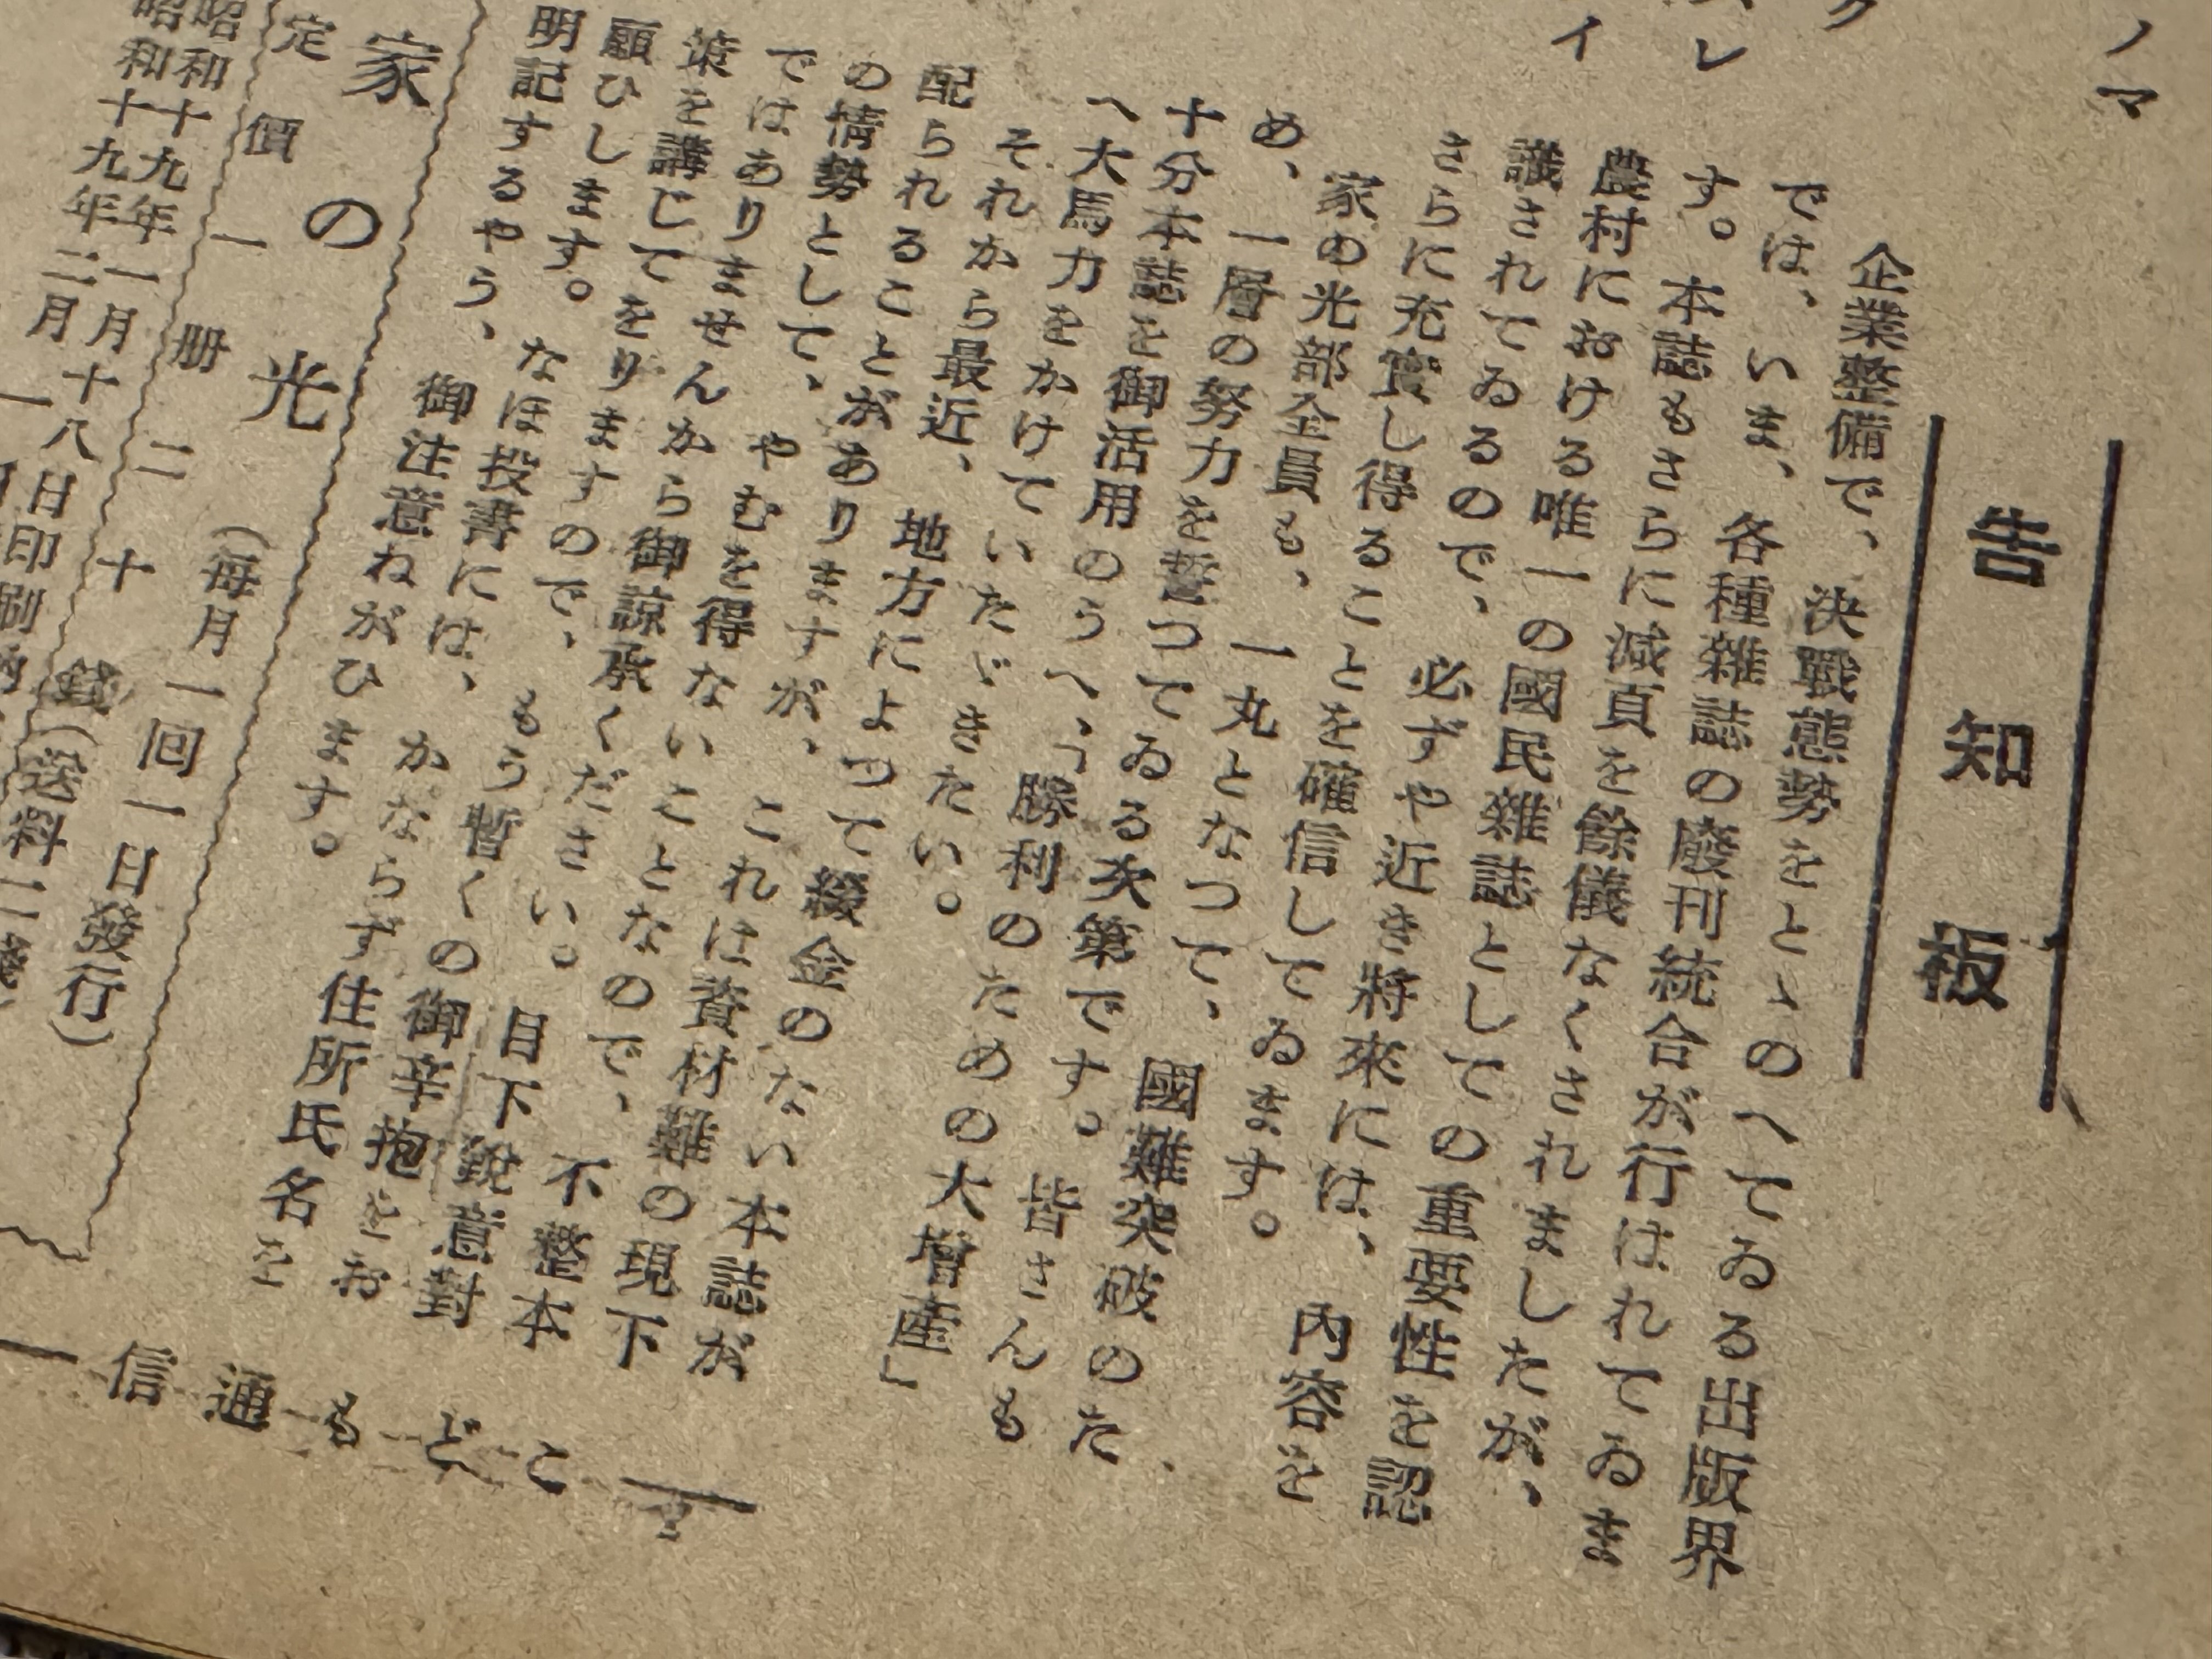 ノマ
ク
スレ
イ
告知板
企業整備で、決戰態勢をとゝのへてゐる出版界
では、いま、各種雜誌の廢刊統合が行はれてゐま
す。本誌もさらに減頁を餘儀なくされましたが、
農村における唯一の國民雜誌としての重要性を認
識されてゐるので、必ずや近き將來には、內容を
さらに充實し得ることを確信してゐます。
家の光部全員も、一丸となつて、國難突破のた
め、一層の努力を誓つてゐる次第です。皆さんも
十分本誌を御活用のうへ、「勝利のための大增產」
へ大馬力をかけていたゞきたい。
それから最近、地方によつて綴金のない本誌が
配られることがありますが、これは資材難の現下
の情勢として、やむを得ないことなので、不整本
ではありませんから御諒承ください。目下銳意對
策を講じてをりますので、もう暫くの御辛抱をお
願ひします。なほ投書には、かならず住所氏名を
明記するやう、御注意ねがひます。
家の光 (每月一回一日發行)
定價一册二十錢(送料二錢)
昭和十九年一月十八日印刷
昭和十九年二月一
こども通信